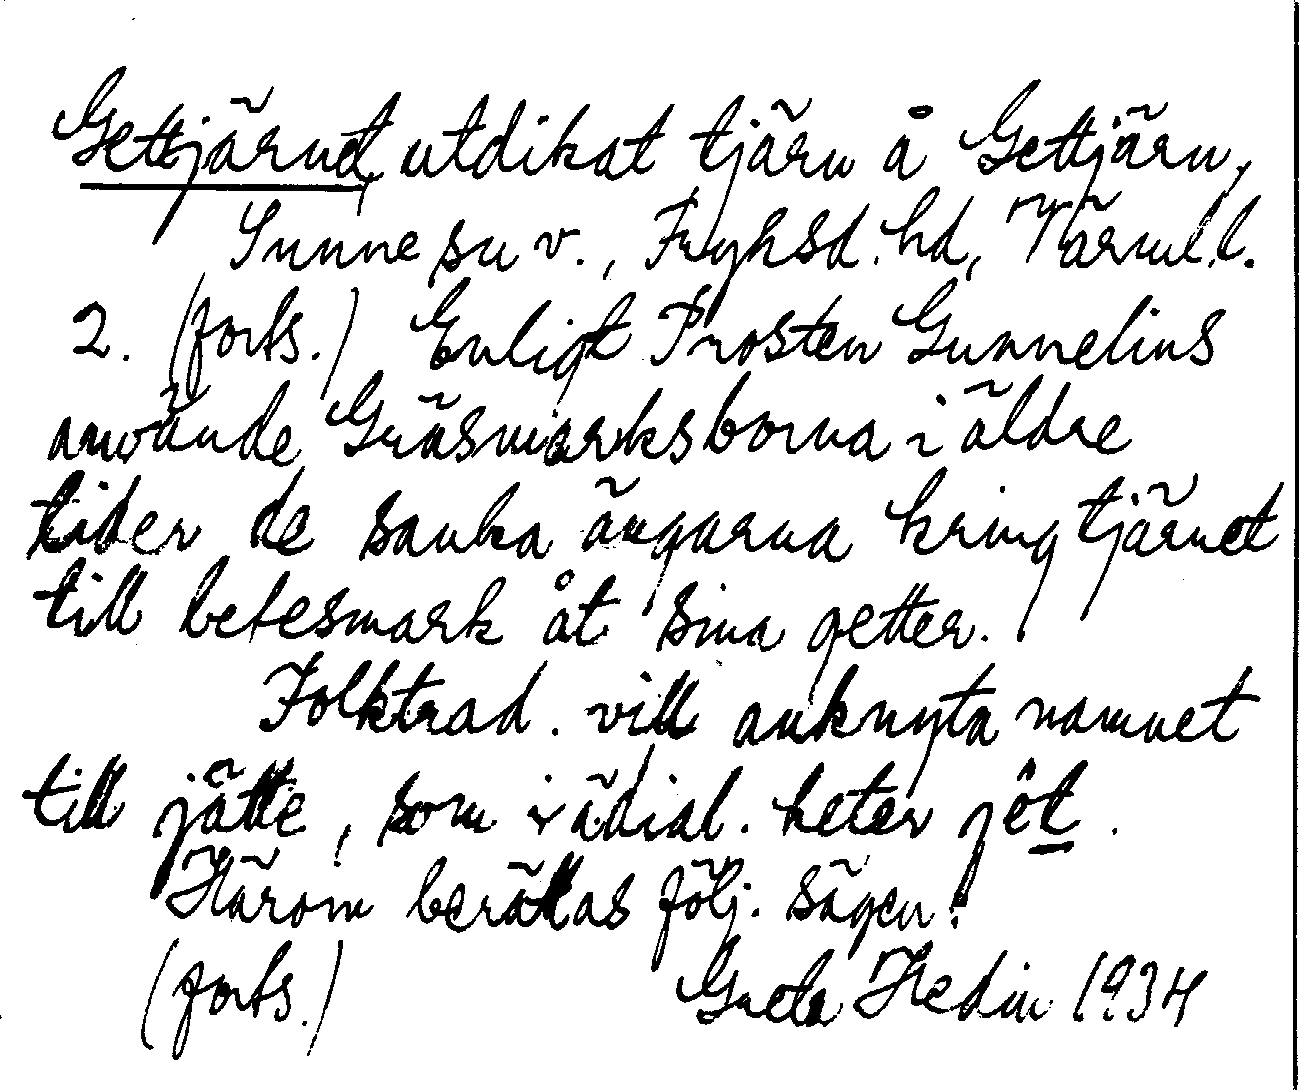 Gettjärnet, utdikat tjärn å Gettjärn,
Sunne sn v., Fryksd. hd, Värml. l.
2. (forts.) Enligt Prosten Gunnelius
använde Gräsmarksborna i äldre
tider de sanka ängarna kring tjärnet
till betesmark åt sina getter.
Folktrad. vill anknyta namnet
till jätte, som i ä dial. heter jöt.
Härom berättas följ. sägen:
(forts.) Greta Hedin 1934